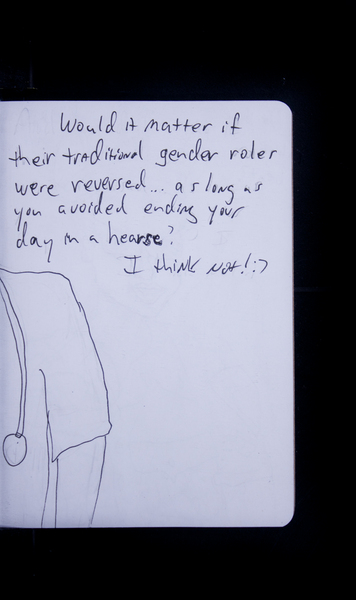 Would it matter if
their traditional gender roles
were reversed... as long as
you avoided ending your
day in a hearse?
I think not! :)